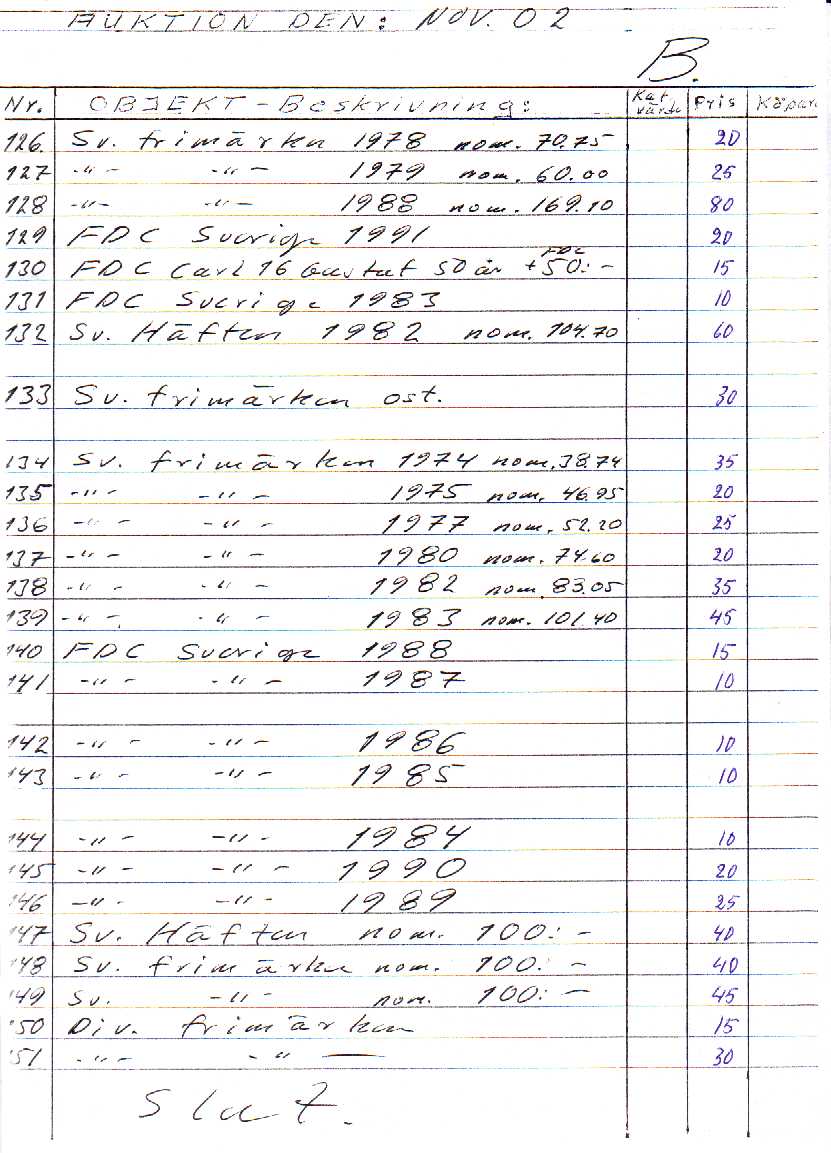 AUKTION DEN: NOV. 02
B.
Nr. OBJEKT - Beskrivning: Kat värde Pris Köpare
126. Sv. frimärken 1978 nom. 70.75 20
127 -"- -"- 1979 nom. 60.00 25
128 -"- -"- 1988 nom. 169.10 80
129 FDC Sverige 1991 20
130 FDC Carl 16 Gustaf 50 år + FDC 50:- 15
131 FDC Sverige 1983 10
132 Sv. Häften 1982 nom. 104.70 60
133 Sv. frimärken ost. 30
134 Sv. frimärken 1974 nom. 38.74 35
135 -"- -"- 1975 nom. 46.95 20
136 -"- -"- 1977 nom. 52.20 25
137 -"- -"- 1980 nom. 74.60 20
138 -"- -"- 1982 nom. 83.05 35
139 -"- -"- 1983 nom. 101.40 45
140 FDC Sverige 1988 15
141 -"- -"- 1987 10
142 -"- -"- 1986 10
143 -"- -"- 1985 10
144 -"- -"- 1984 10
145 -"- -"- 1990 20
146 -"- -"- 1989 25
147 Sv. Häften nom. 100:- 40
148 Sv. frimärken nom. 100:- 40
149 Sv. -"- nom. 100:- 45
150 Div. frimärken 15
151 -"- -"- 30
Slut.